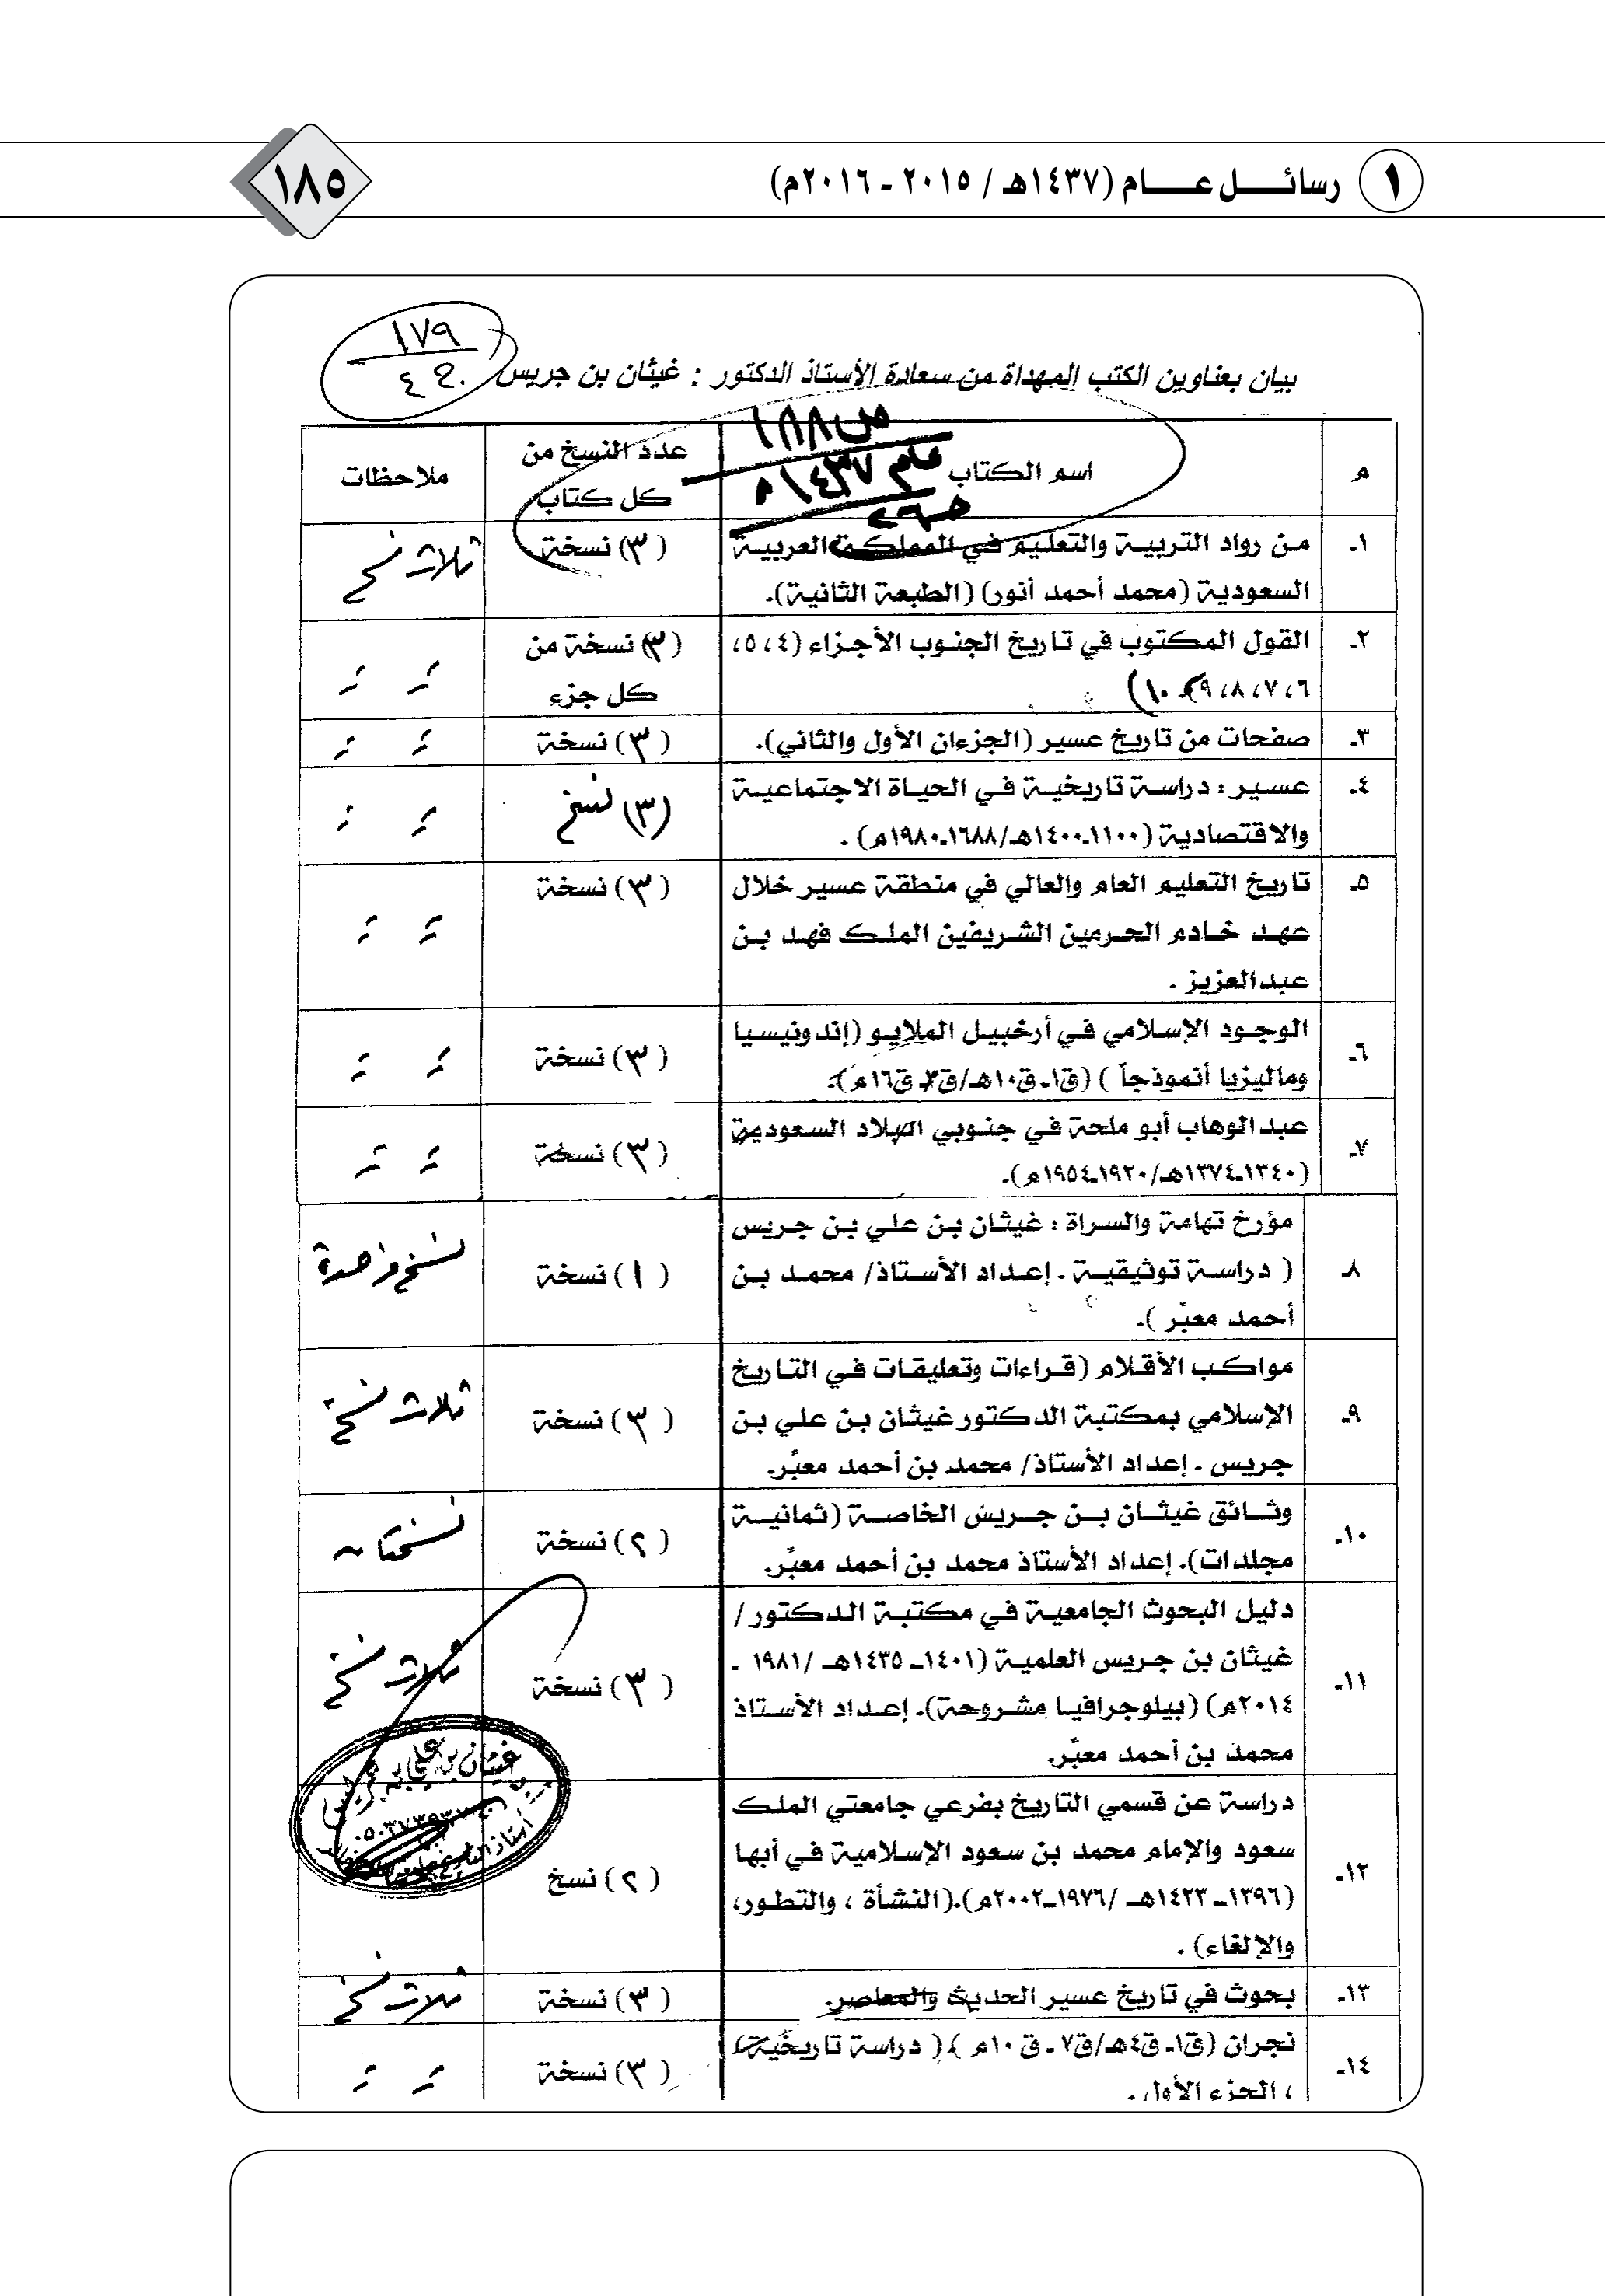 ١ رسائل عام (١٤٣٧هـ / ٢٠١٥ - ٢٠١٦م)
١٨٥
١٧٩
بيان بعناوين الكتب المهداة من سعادة الأستاذ الدكتور : غيثان بن جريس
ص١٨٨
عام ١٤٣٧هـ
م
اسم الكتاب
عدد النسخ من
كل كتاب
ملاحظات
١ـ
من رواد التربية والتعليم في المملكة العربية
السعودية (محمد أحمد أنور) (الطبعة الثانية).
(٣) نسخة
ثلاث نسخ
٢ـ
القول المكتوب في تاريخ الجنوب الأجزاء (٤، ٥،
٦، ٧، ٨، ٩، ١٠)
(٣) نسخة من
كل جزء
٣ـ
صفحات من تاريخ عسير (الجزءان الأول والثاني).
(٣) نسخة
٤ـ
عسير : دراسة تاريخية في الحياة الاجتماعية
والاقتصادية (١١٠٠ـ١٤٠٠هـ/١٦٨٨ـ١٩٨٠م) .
(٣) نسخ
٥ـ
تاريخ التعليم العام والعالي في منطقة عسير خلال
عهد خادم الحرمين الشريفين الملك فهد بن
عبدالعزيز .
(٣) نسخة
٦ـ
الوجود الإسلامي في أرخبيل الملايو (إندونيسيا
وماليزيا أنموذجاً ) (ق١ـ ق١٠هـ/ق٧ـ ق١٦م).
(٣) نسخة
٧ـ
عبدالوهاب أبو ملحة في جنوبي البلاد السعودية
(١٣٤٠ـ١٣٧٤هـ/١٩٢٠ـ١٩٥٤م).
(٣) نسخة
٨ـ
مؤرخ تهامة والسراة : غيثان بن علي بن جريس
( دراسة توثيقية ـ إعداد الأستاذ/ محمد بن
أحمد معبّر ).
(١) نسخة
نسخة واحدة
٩ـ
مواكب الأقلام (قراءات وتعليقات في التاريخ
الإسلامي بمكتبة الدكتور غيثان بن علي بن
جريس ـ إعداد الأستاذ/ محمد بن أحمد معبّر.
(٣) نسخة
ثلاث نسخ
١٠ـ
وثائق غيثان بن جريس الخاصة (ثمانية
مجلدات). إعداد الأستاذ محمد بن أحمد معبّر.
(٢) نسخة
نسختان
١١ـ
دليل البحوث الجامعية في مكتبة الدكتور /
غيثان بن جريس العلمية (١٤٠١ـ ١٤٣٥هـ /١٩٨١ ـ
٢٠١٤م) (بيلوجرافيا مشروحة). إعداد الأستاذ
محمد بن أحمد معبّر.
(٣) نسخة
ثلاث نسخ
غيثان بن علي بن جريس
١٢ـ
دراسة عن قسمي التاريخ بفرعي جامعتي الملك
سعود والإمام محمد بن سعود الإسلامية في أبها
(١٣٩٦ـ ١٤٢٣هـ /١٩٧٦ـ٢٠٠٢م).(النشأة ، والتطور،
والإلغاء) .
(٢) نسخ
١٣ـ
بحوث في تاريخ عسير الحديث والمعاصر.
(٣) نسخة
ثلاث نسخ
١٤ـ
نجران (ق١ـ ق٤هـ/ق٧ ـ ق١٠م ) ( دراسة تاريخية)
، الجزء الأول .
(٣) نسخة